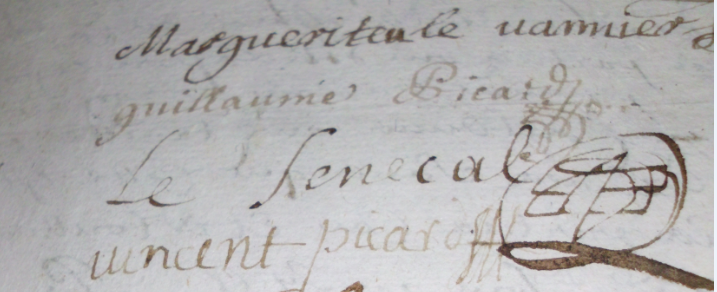 Margueritte le vannier
guillaume Picard
Le Senecal
vincent picard